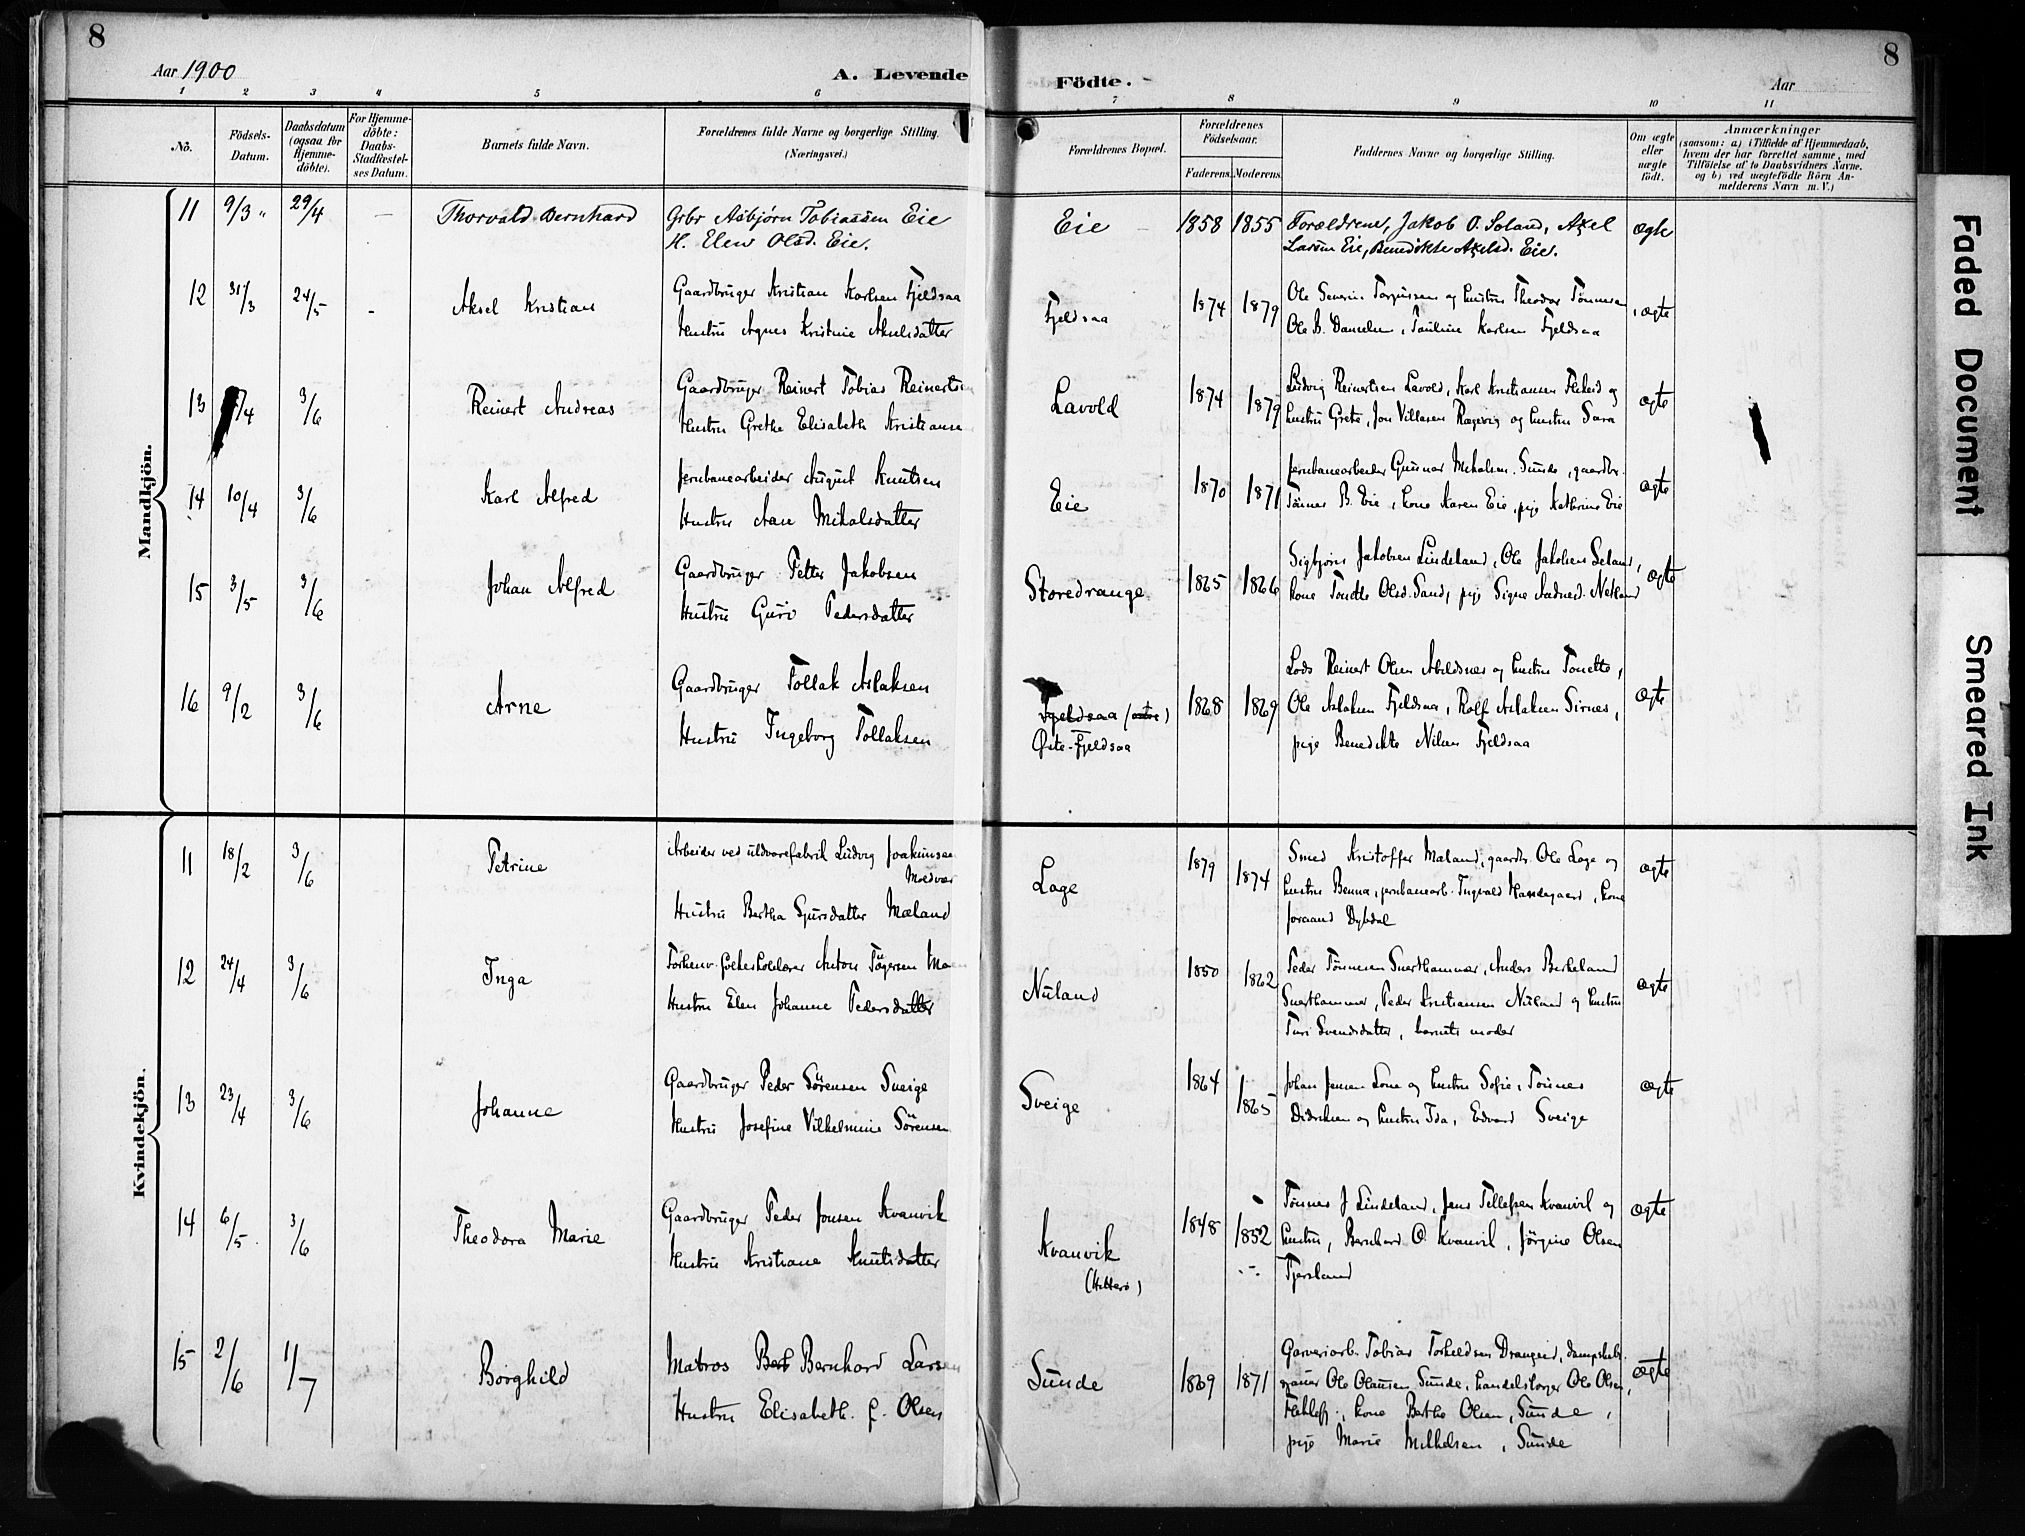 8
8
Aar 1900
A. Levende
Födte.
Aar
1 2 3 4 5 6 7 8 9 10 11
No.
Födsels-
Datum.
Daabsdatum
(ogsaa for
Hjemme-
döbte).
For Hjemme-
döbte:
Daabs-
Stadfæstel-
ses Datum.
Barnets fulde Navn.
Forældrenes fulde Navne og borgerlige Stilling.
(Næringsvei.)
Forældrenes Bopæl.
Forældrenes
Födselsaar.
Faderens. Moderens.
Faddernes Navne og borgerlige Stilling.
Om ægte
eller
uægte
födt.
Anmærkninger
(saasom: a) i Tilfælde af Hjemmedaab,
hvem der har forrettet samme, med
Tilföielse af to Daabsvidners Navne.
og b) ved uægtefödte Börn An-
melderens Navn m. V.)
Mandkjön.
11 9/3 " 29/4 — Thorvald Bernhard Grbr Asbjørn Tobiassen Eie Eie 1858 1855 Forældrene, Jakob O. Soland, Axel ægte
H. Elen Olsd. Eie. Larsen Eie, Benedikte Axelsd. Eie.
12 31/3 24/5 - Aksel Kristian Gaardbruger Kristian Karlsen Fjeldsaa Fjeldsaa 1874 1879 Ole Severin Torginsen og hustru Theodor Tönnesen ægte
Hustru Agnes Kristine Akselsdatter Ole B. Danielsen, Pauline Karlsen Fjeldsaa
13 /4 3/6 Reinert Andreas Gaardbruger Reinert Tobias Reinertsen Lavold 1874 1879 Ludvig Reinertsen Lavold, Karl Kristiansen Flikeid og ægte
Hustru Grethe Elisabeth Kristianse hustru Grete, Jon Villasen Rægevig og hustru Sara
14 10/4 3/6 Karl Alfred Jernbanearbeider August Knutsen Eie 1870 1871 Jernbanearbeider Gunnar Mikalsen Sunde, gaardbr. ægte
Hustru Ane Mikalsdatter Tönnes B. Eie, kone Karen Eie, pige Kathrine Eie
15 3/5 3/6 Johan Alfred Gaardbruger Petter Jakobsen Storedrange 1865 1866 Sigbjörn Jakobsen Lindeland, Ole Jakobsen Seland, ægte
Hustru Guro Pedersdatter kone Tonette Olsd. Sand, pige Signe Aadnesd. Netland
16 9/2 3/6 Arne Gaardbruger Tollak Aslaksen Fjeldsaa (østre) 1868 1869 Lods Reinert Olsen Abeldsnes og hustru Tonette, ægte
Hustru Ingeborg Tollaksen Øste-Fjeldsaa Ole Aslaksen Fjeldsaa, Rolf Aslaksen Sirnes,
pige Benedikte Nilsen Fjeldsaa
Kvindekjön.
11 18/2 3/6 Petrine Arbeider ved uldvarefabrik Ludvig Joakimsen Lage 1879 1874 Smed Kristoffer Mæland, gaardb. Ole Lage og ægte
Moldvær hustru Benna, jernbanearb. Ingvald Handegaard, kone
Hustru Bertha Sjursdatter Mæland Joraand Dybdal
12 24/4 3/6 Inga Forhenv. folkeskolelærer Anton Tögersen Nuland 1850 1862 Peder Tönnesen Sverthammer, Anders Birkeland ægte
Hustru Elen Johanne Pedersdatter Svarthammer, Peder Kristiansen Nuland og hustru
Turi Svendsdatter, barnets moder
13 23/4 3/6 Johanne Gaardbruger Peder Sörensen Sveige Sveige 1864 1865 Johan Jensen Lone og hustru Sofie, Tönnes ægte
Hustru Josefine Vilhelmine Sörensen Didriksen og hustru Ida, Edvard Sveige
14 6/5 3/6 Theodora Marie Gaardbruger Peder Jonsen Kvanvik Kvanvik 1848 1852 Tönnes J Lindeland, Jens Tellefsen Kvanvik og ægte
Hustru Kristiane Knutsdatter (Hitterö) hustru, Bernhard O. Kvanvik, Jörgine Olsen
Tjersland
15 2/6 1/7 Borghild Matros Bernhard Larsen Sunde 1869 1871 Garveriarb. Tobias Torkeldsen Drangeid, dampskibs- ægte
Hustru Elisabeth f. Olsen Ole Olausen Sunde, handelsborger Ole Olsen,
Flikkefj., kone Berthe Olsen, Sunde,
pige Marie Mikkelsen, Sunde
Faded Document
Smeared Ink